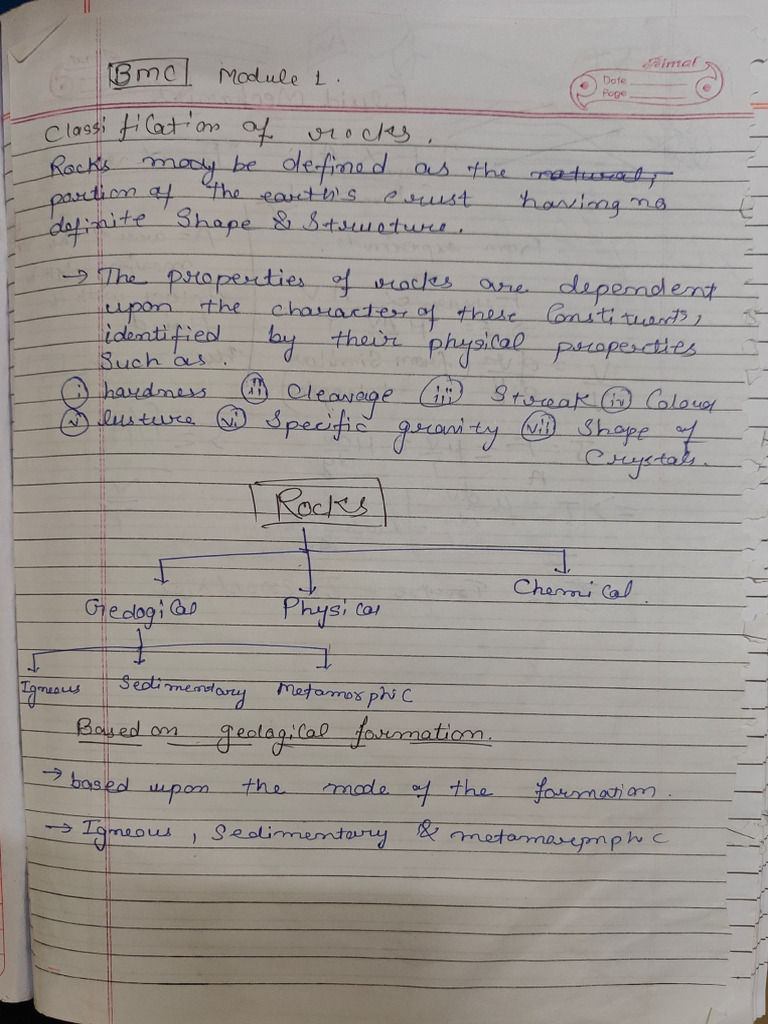 BMC Module 1.
Trimal
Date
Page
Classification of rocks.
Rocks mody be defined as the natural,
partion of the earth's crust having no
definite Shape & Structure.
→ The properties of rocks are dependent
upon the character of these Constituents,
identified by their physical properties
Such as.
(i) hardness (ii) Cleavage (iii) Streak (iv) Colour
(v) lusture (vi) Specific gravity (vii) Shape of
Crystals.
Rocks
Geological Physical Chemical.
Igneous Sedimentary Metamorphic
Based on geological formation.
→ based upon the mode of the formation.
→ Igneous, Sedimentary & metamorphic